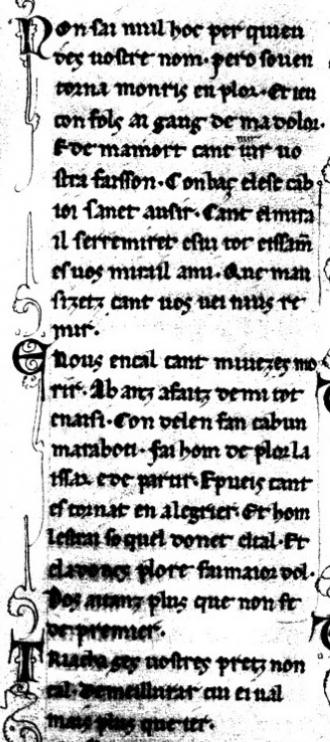 Non sai nuil hoc per quieu
des uostre nom. pero souen
torna monris en plor. Et ieu
con fols ai gaug de ma dolor.
E de mamort cant uir uo
stra faisson. Con baz elesc cab
ior sanet ausir. Cant el mira
il se remiret esui tot eissam̅
es uos mirail ami. Que mau
sizetz cant uos uei nius re
mir.
Nous encal cant miuezes mo
rir. Ab anz afaitz de mi tot
enaisi. Con delen fan cab un
mataboti. fai hom de plor la
issar e de partir. E pueis cant
es tornat en alegrier. Et hom
lestrai so quel donet e tal. Et
el adoncs plore fai maior dol.
Dos aitanz plus que non fe
de premier.
Triacha ges uostres pretz non
cal. de meillurar cui ei ual
mais plus que ier.